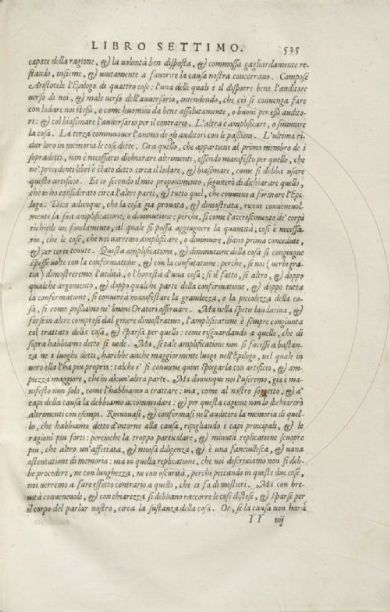 LIBRO SETTIMO. 535
capace della ragione, & la volontà ben disposta, & commossa gagliardamente re-
stando, insieme, & unitamente a favorire la causa nostra concorrano. Compose
Aristotele l'Epilogo di quattro cose: l'una delle quali è il disporre bene l'auditore
verso di noi, & male verso dell'aversario, intendendo, che ci si convenga fare
con lodare noi stessi, o come huomini da bene assolutamente, o buoni per essi audito-
ri: & col biasimare l'aversario per il contrario. L'altra è amplificare, o sminuire
la cosa. La terza commuovere l'animo de gli auditori con le passioni. L'ultima ri-
dur loro in memoria le cose dette. Ora quello, che appartiene al primo membro de i
sopradetti, non è necessario dichiarare altrimenti, essendo manifesto per quello, che
ne' precedenti libri è stato detto circa il lodare, & biasimare, come si debba usare
questo artificio. Et io secondo il mio proponimento, seguiterò di dichiarare quello,
che ei ha considerato circa l'altre parti, & tutto quel, che conviene a formare l'Epi-
logo: Dico adunque, che la cosa già provata, & dimostrata, riceve convenevol-
mente la sua amplificatione, o diminutione; perche, si come l'accrescimento de' corpi
richiede un fondamento, al quale si possa aggiugnere la quantità; così è necessa-
rio, che le cose, che noi vorremo amplificare, o diminuire, siano prima concedute,
& per certe tenute. Questa amplificatione, & diminutione della cosa si congiugne
spesse volte con la confermatione, & con la confutatione; perche, se noi (verbi gra-
tia) dimostreremo l'utilità, o l'honestà d'una cosa; si il fatto, se altro, & doppo
qualche argomento, & doppo qualche parte della confermatione, & doppo tutta
la confermatione, si converrà manifestare la grandezza, o la piccolezza della co-
sa, si come possiamo ne' buoni Oratori osservare. Ma nella spetie laudativa, &
forse in altre comprese dal genere dimostrativo, l'amplificatione è sempre congiunta
col trattato della cosa, & sparsa per quelle: come risguardando a quello, che di
sopra habbiamo detto si vede. Ma, se tale amplificatione non si facesse a bastan-
za ne i luoghi detti, harebbe anche maggiormente luogo nell'Epilogo, nel quale in
vero ella l'ha piu propria: talche è si conviene quivi spiegarla con artifitio, & am-
piezza maggiore, che in alcun'altra parte. Ma dovunque noi l'useremo, gia è ma-
nifesto non solo, come l'habbiamo a trattare: ma, come al nostro soggetto, & a'
capi della causa la debbiamo accommodare: & per questa cagione non lo dichiarerò
altrimenti con esempi. Rinnovasi, & confermasi nell'auditore la memoria di quel-
lo, che habbiamo detto intorno alla causa, ripigliando i capi principali, & le
ragioni piu forti: percioche la troppo particulare, & minuta replicatione scuopre
piu, che altro, un'affettata, & noiosa diligenza, & è una fanciullesca, & vana
ostentatione di memoria: ma in quella replicatione, che noi descriviamo non si deb-
be procedere, ne con lunghezza, ne con oscurità, perche peccando in queste due cose,
noi verremo a fare effetto contrario a quello, che ci fa di mestieri. Ma con bre-
vità convenevole, & con chiarezza si debbano raccorre le cose distese, & sparse per
il corpo del parlar nostro, circa la sustanza della cosa. Or, se la causa non harà
II iiij